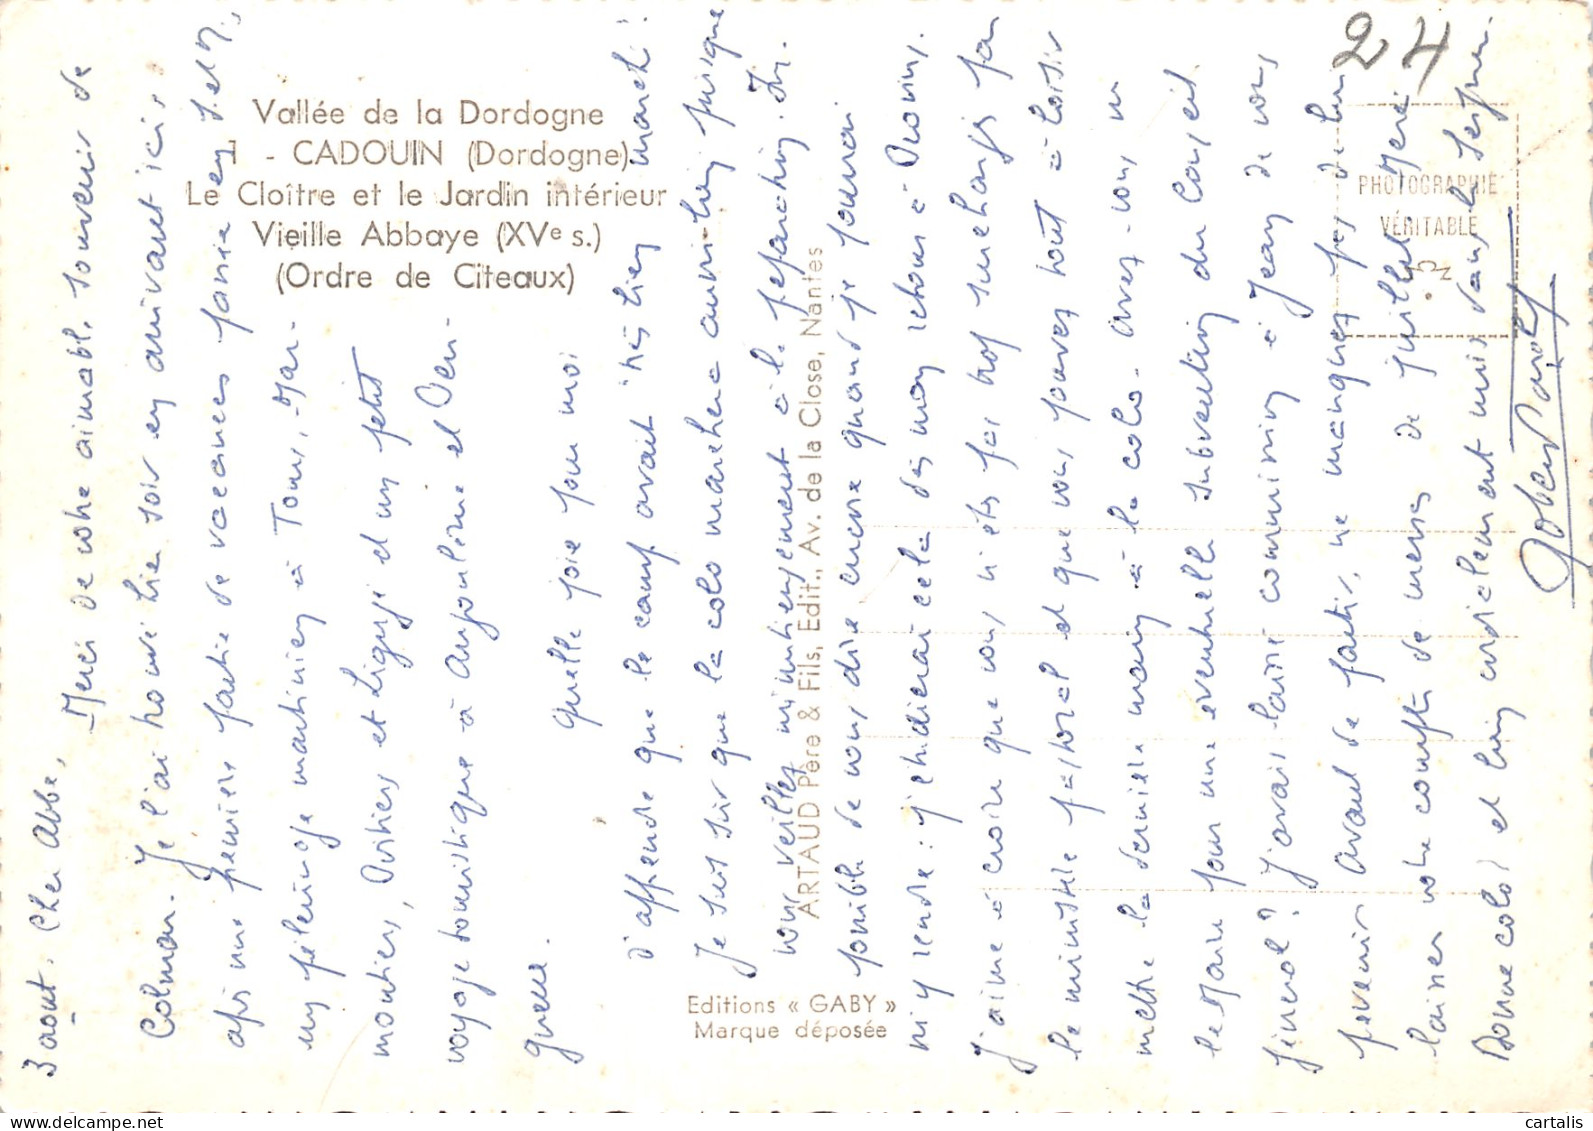 Vallée de la Dordogne
1 - CADOUIN (Dordogne)
Le Cloître et le Jardin intérieur
Vieille Abbaye (XVe s.)
(Ordre de Citeaux)
ARTAUD Père & Fils, Edit., Av. de la Close, Nantes
Editions « GABY »
Marque déposée
PHOTOGRAPHIE
VÉRITABLE
24
3 aout. Cher Abbe,
Merci de votre aimable souvenir de
Colmar. Je l'ai trouvé hier soir en arrivant ici
après une première partie de vacances
un pèlerinage martinien à Tours, Mar-
moutier, Poitiers et Ligugé et un petit
voyage touristique à Angoulême et
quelle joie pour moi
d'apprendre que le camp avait très bien marché!
Je suis sûr que la colo marchera aussi bien puisque
vous veillez minutieusement à la préparation.
possible de vous dire encore quand je pourrai
m'y rendre : j'étudierai cela dès mon retour à
J'aime à croire que vous n'êtes pas trop surchargés par
le ministère pastoral et que vous pouvez tout à loisir
mettre la dernière main à la colo. avez-vous vu
le Maire pour une éventuelle subvention du Conseil
général? J'avais laissé commission à Jean de vous
prévenir avant de partir, ne manquez pas de lui
laisser votre compte de messes de juillet. Merci
Bonne colo! et bien cordialement